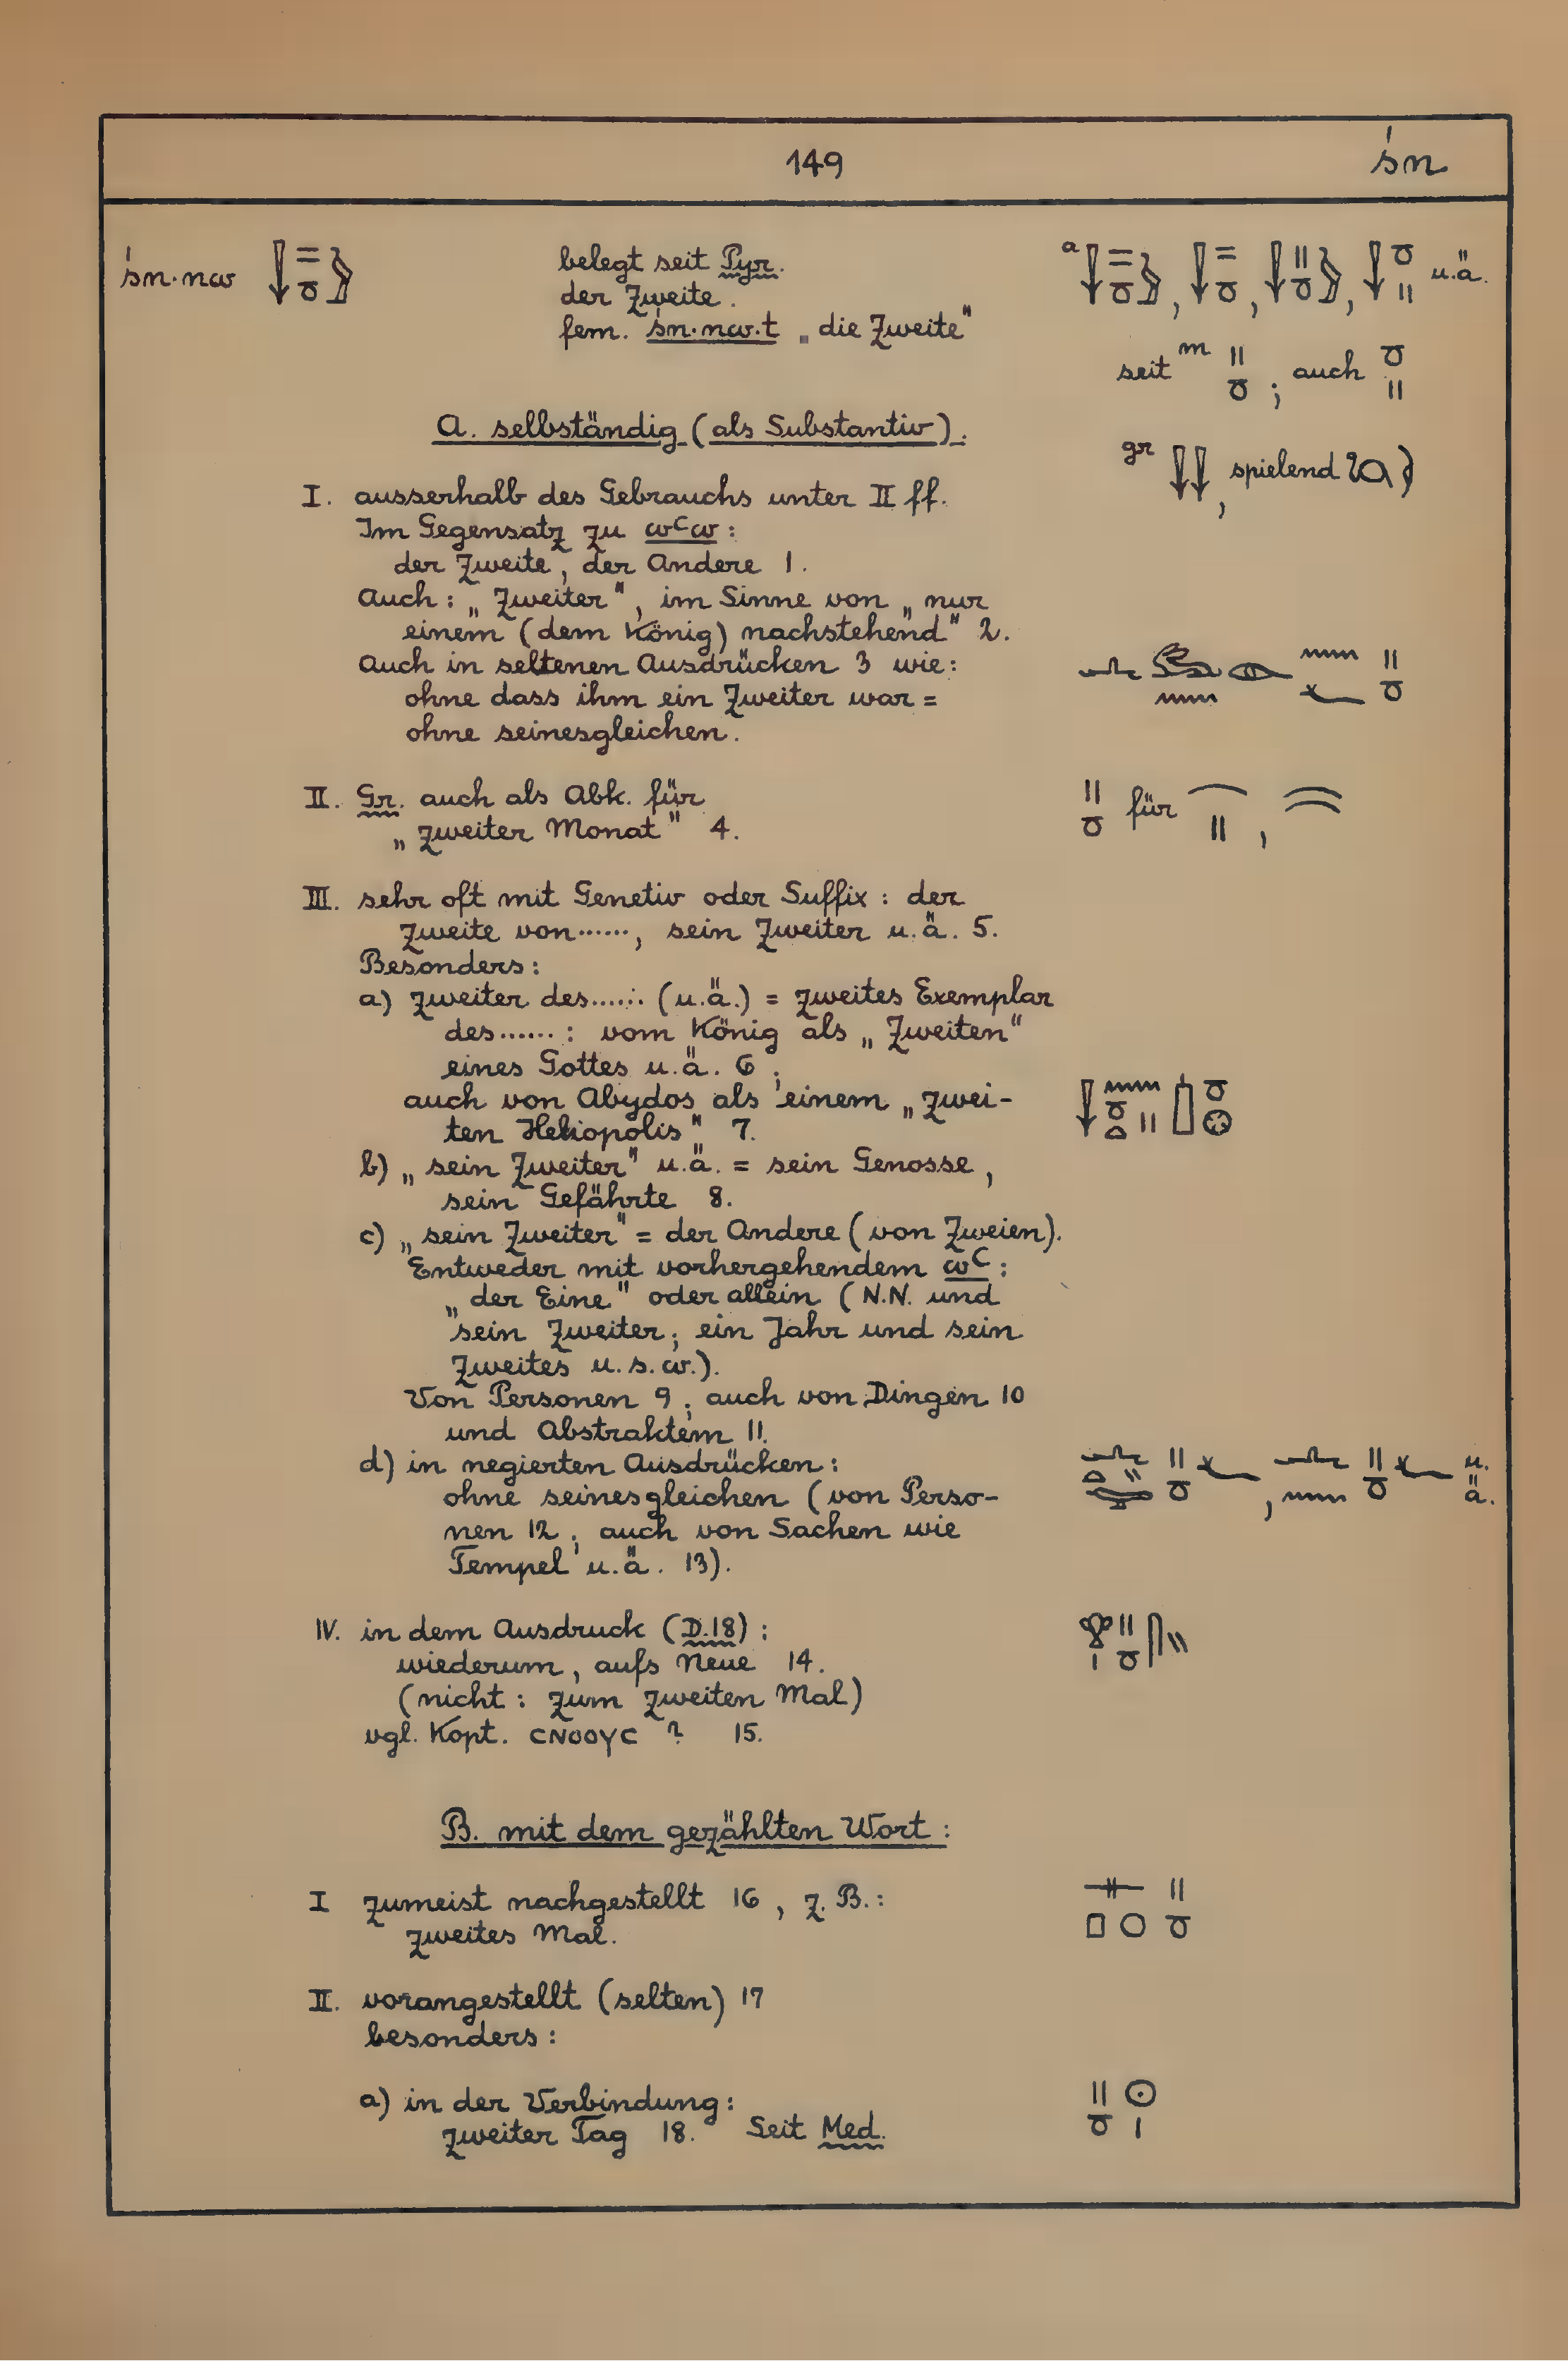 149
śn
śn·nw
belegt seit Pyr.
der Zweite.
fem. śn·nw.t „die Zweite"
a , , , u.ä.
seit m ; auch
gr , spielend
A. selbständig (als Substantiv).
I. ausserhalb des Gebrauchs unter II ff.
Im Gegensatz zu wꜥw:
der Zweite, der Andere 1.
Auch: „Zweiter", im Sinne von „nur
einem (dem König) nachstehend" 2.
Auch in seltenen Ausdrücken 3 wie:
ohne dass ihm ein Zweiter war =
ohne seinesgleichen.
II. Gr. auch als Abk. für
„zweiter Monat" 4.
für ,
III. sehr oft mit Genetiv oder Suffix: der
Zweite von......, sein Zweiter u.ä. 5.
Besonders:
a) Zweiter des...... (u.ä.) = zweites Exemplar
des......: vom König als „Zweiten"
eines Gottes u.ä. 6;
auch von Abydos als einem „zwei-
ten Heliopolis" 7.
b) „sein Zweiter" u.ä. = sein Genosse,
sein Gefährte 8.
c) „sein Zweiter" = der Andere (von Zweien).
Entweder mit vorhergehendem wꜥ:
„der Eine" oder allein (N.N. und
sein Zweiter; ein Jahr und sein
Zweites u.s.w.).
Von Personen 9; auch von Dingen 10
und Abstraktem 11.
d) in negierten Ausdrücken:
ohne seinesgleichen (von Perso-
nen 12; auch von Sachen wie
Tempel u.ä. 13).
, u.ä.
IV. in dem Ausdruck (D.18):
wiederum, aufs Neue 14.
(nicht: zum zweiten Mal)
vgl. Kopt. ⲥⲛⲟⲟⲩⲥ ? 15.
B. mit dem gezählten Wort:
I zumeist nachgestellt 16, z.B.:
zweites Mal.
II. vorangestellt (selten) 17
besonders:
a) in der Verbindung:
zweiter Tag 18. Seit Med.